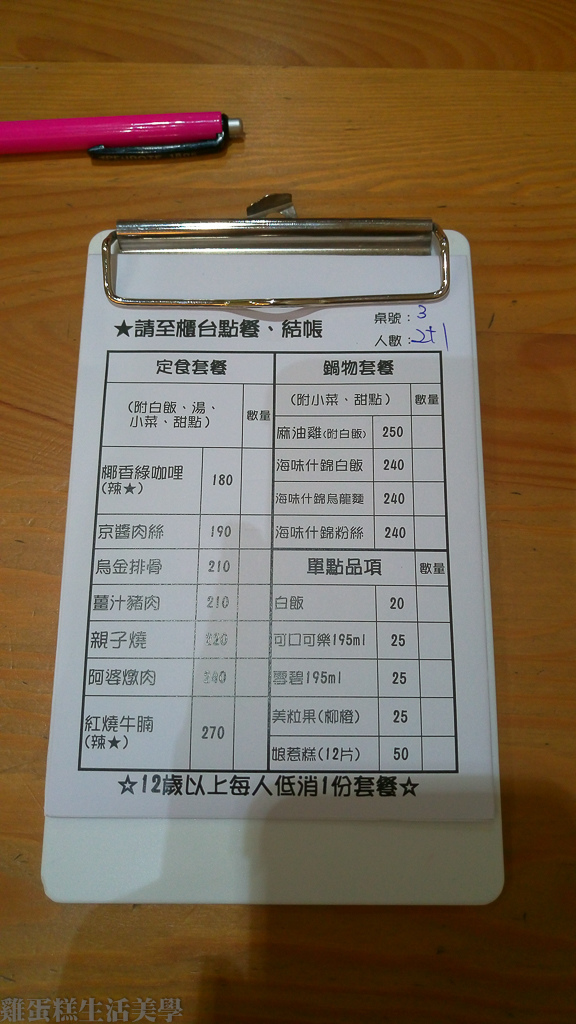 ★請至櫃台點餐、結帳
桌號：3
人數：2+1
定食套餐
(附白飯、湯、
小菜、甜點)
數量
椰香綠咖哩
(辣★)
180
京醬肉絲 190
烏金排骨 210
薑汁豬肉 210
親子燒 220
阿婆燉肉
紅燒牛腩
(辣★)
270
鍋物套餐
(附小菜、甜點) 數量
麻油雞(附白飯) 250
海味什錦白飯 240
海味什錦烏龍麵 240
海味什錦粉絲 240
單點品項 數量
白飯 20
可口可樂195ml 25
雪碧195ml 25
美粒果(柳橙) 25
娘惹糕(12片) 50
☆12歲以上每人低消1份套餐☆
雞蛋糕生活美學